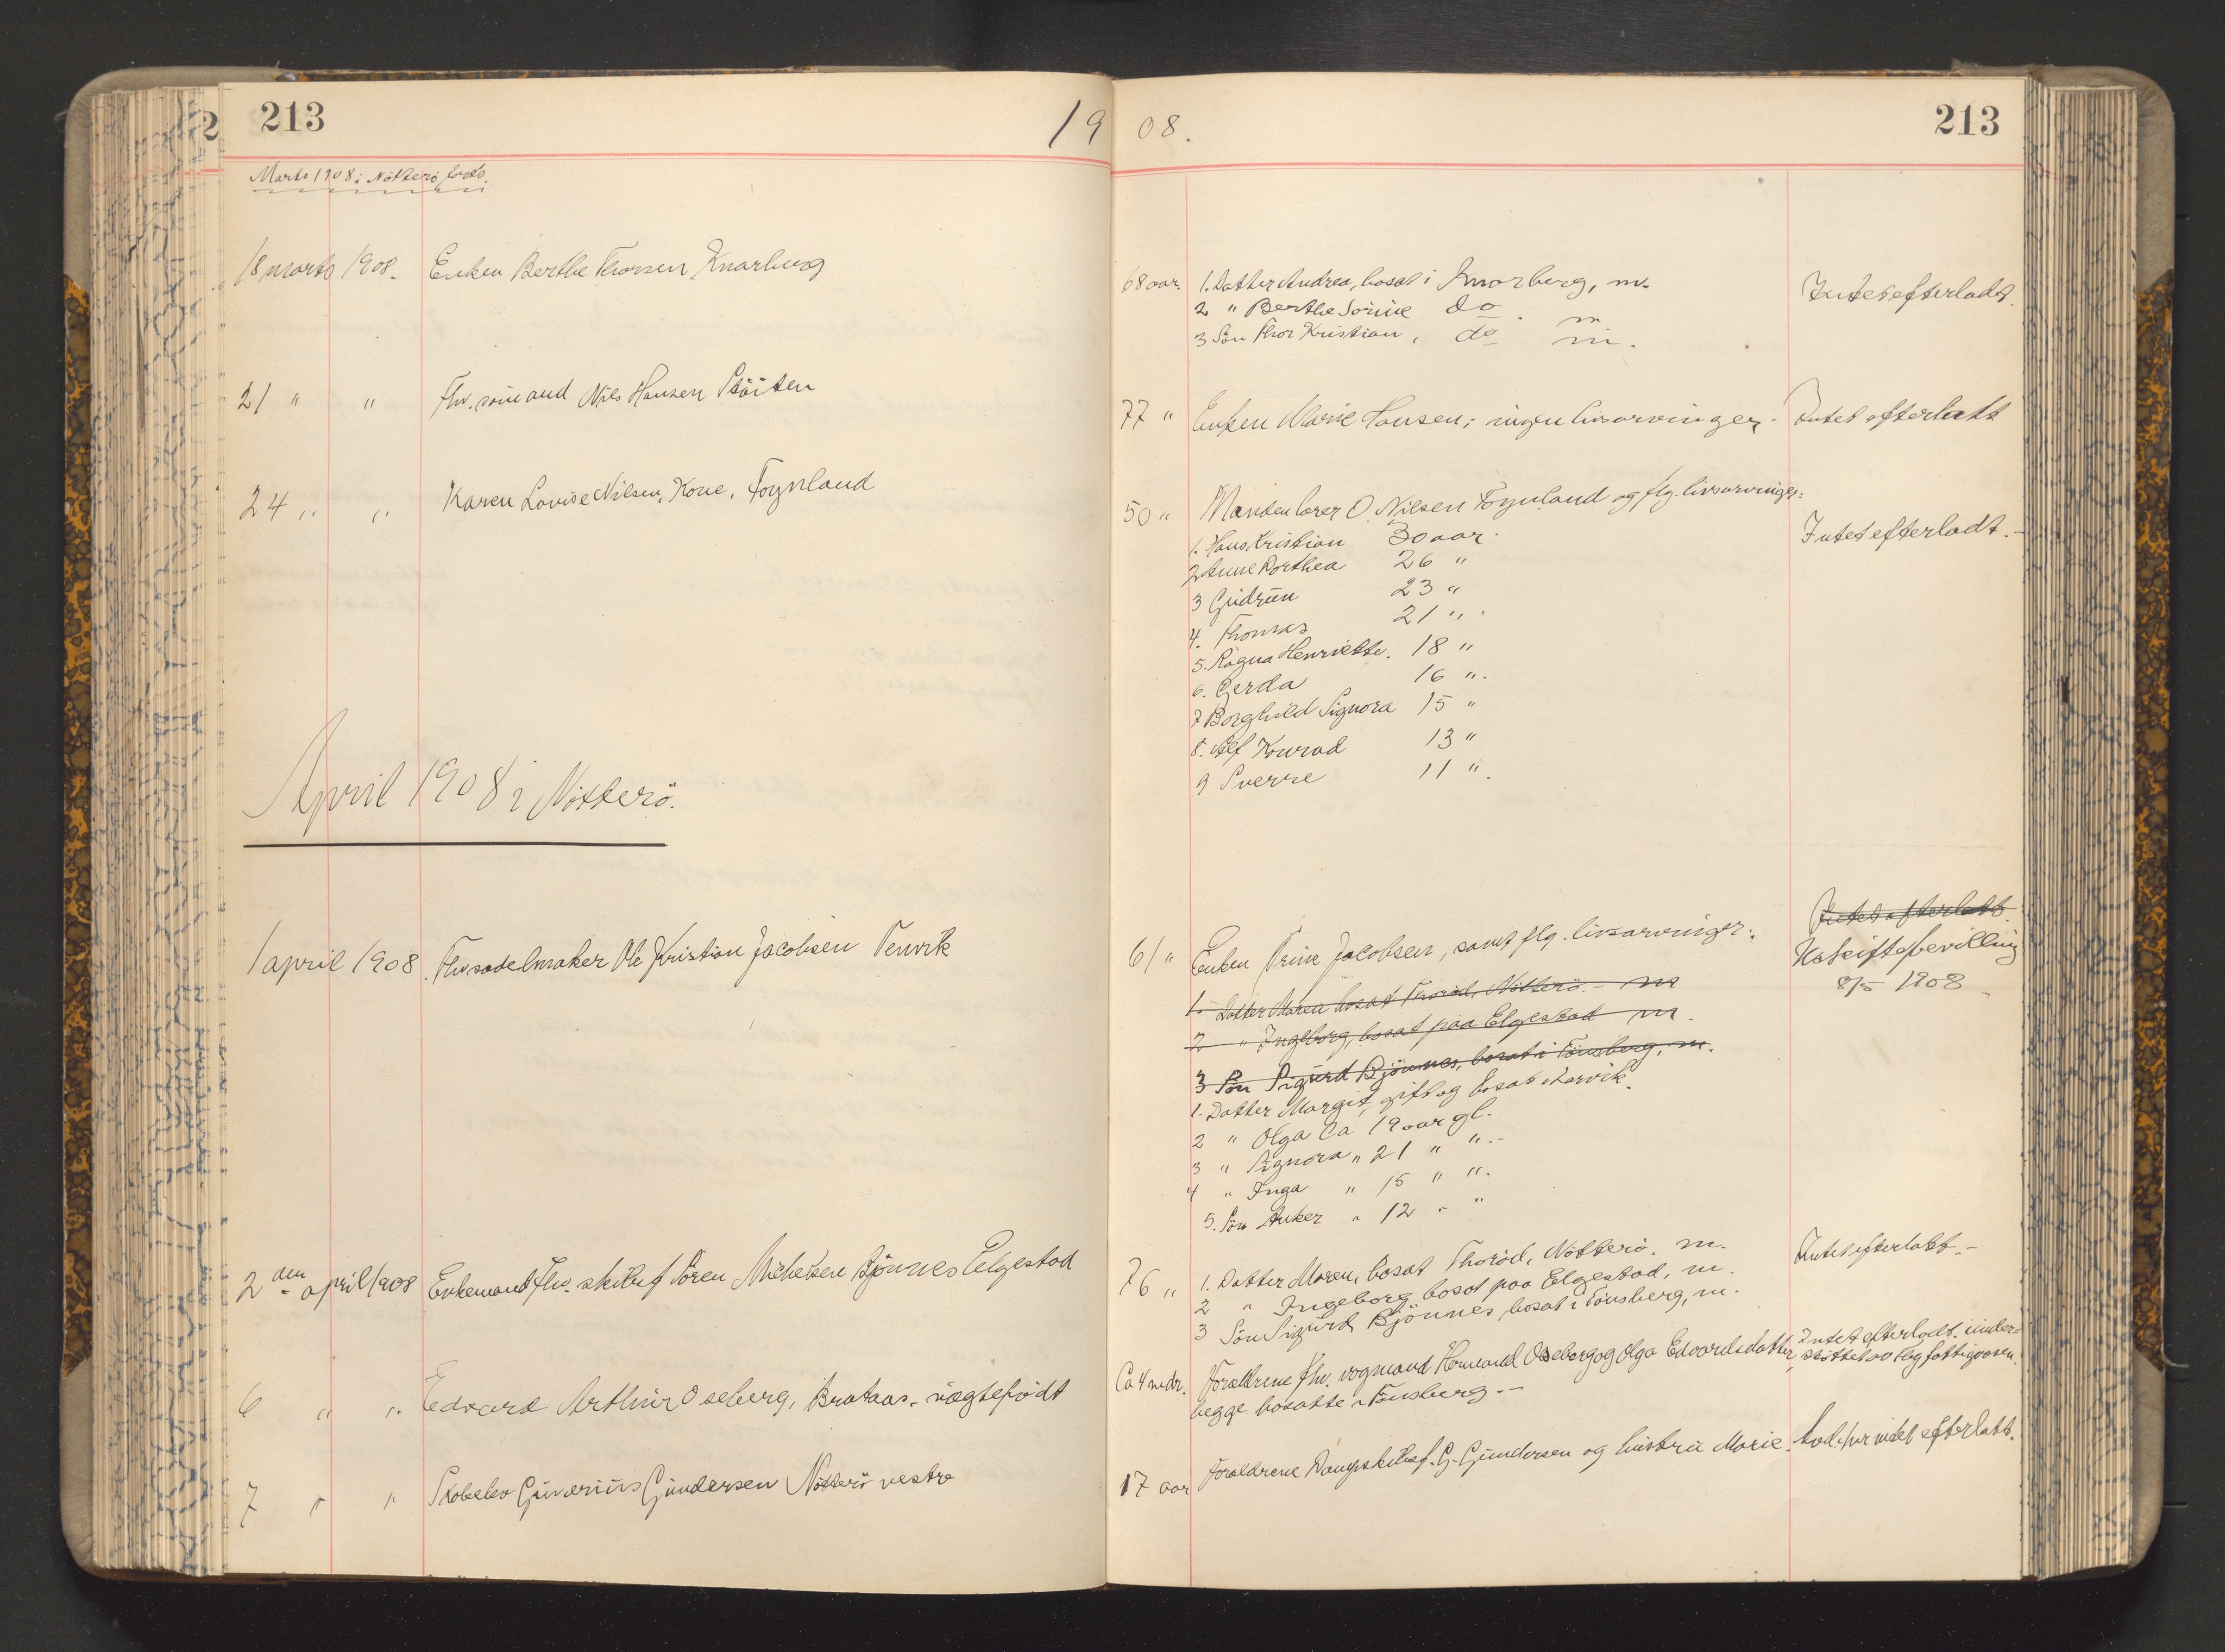 213
1908.
213
Marts 1908 i Nötterö forts.
18 marts 1908. Enken Berthe Thorsen Knarberg
68 aar. 1. Datter Andrea, bosat i Knarberg, m.
2 " Berthe Sorine do. m
3 Sön Thor Kristian, do m.
Intet efterladt.
21 " " Fhv. sömand Nils Hansen
77 " Enken Marie Hansen; ingen livsarvinger.
Intet efterlatt
24 " " Karen Lovise Nilsen, Kone, Föynland
50 " Manden lorer O. Nilsen Föynland og flg. livsarvinger:
1. Hans Kristian 30 aar.
2 Anne Dorthea 26 "
3 Gudrun 23 "
4. Thomas 21 "
5. Ragna Henriette. 18 "
6. Gerda 16 ".
7 Borghild Signora 15 "
8. Alf Konrad 13 "
9 Sverre 11 ".
Intet efterladt.-
April 1908 i Nötterö.
1 april 1908. Fhv sadelmaker Ole Kristian Jacobsen Tenvik
61 " Enken Trine Jacobsen, samt flg. livsarvinger:
1. Datter Maren bosat Thoröd, Nötterö.- m
2 " Ingeborg, bosat paa Elgestad m.
3 Sön Sigurd Bjönnes, bosat i Tönsberg, m.
1. Datter Margit, gift og bosat Narvik.
2 " Olga Ca 19 aar gl.
3 " Signora " 21 " ".-
4 " Inga " 15 " ".
5. Sön Anker " 12 " "
Intet efterlatt.
Uskiftebevilling
8/5 1908
2den april 1908 Enkemand Fhv. skibsf Sören Michelsen Bjönnes Elgestad
76 " 1. Datter Maren, bosat Thoröd, Nötterö. m.
2 " Ingeborg bosat paa Elgestad, m.
3 Sön Sigurd Bjönnes bosat i Tönsberg, m.
Intet efterlatt.-
6 " ". Edvard Arthur Oseberg, Brataas.- uægtefödt
Ca 4 mdr. Forældrene fhv. vognmand Hermand Oseberg og Olga Edvardsdatter,
begge bosatte i Tönsberg.-
Intet efterladt. under-
støttet av Tbg fattigvæsen.
7 " " Skobelev Gunerius Gundersen Nötterö vestre
17 aar Forældrene Dampskibsf. G. Gundersen og hustru Marie.
intet efterlatt.